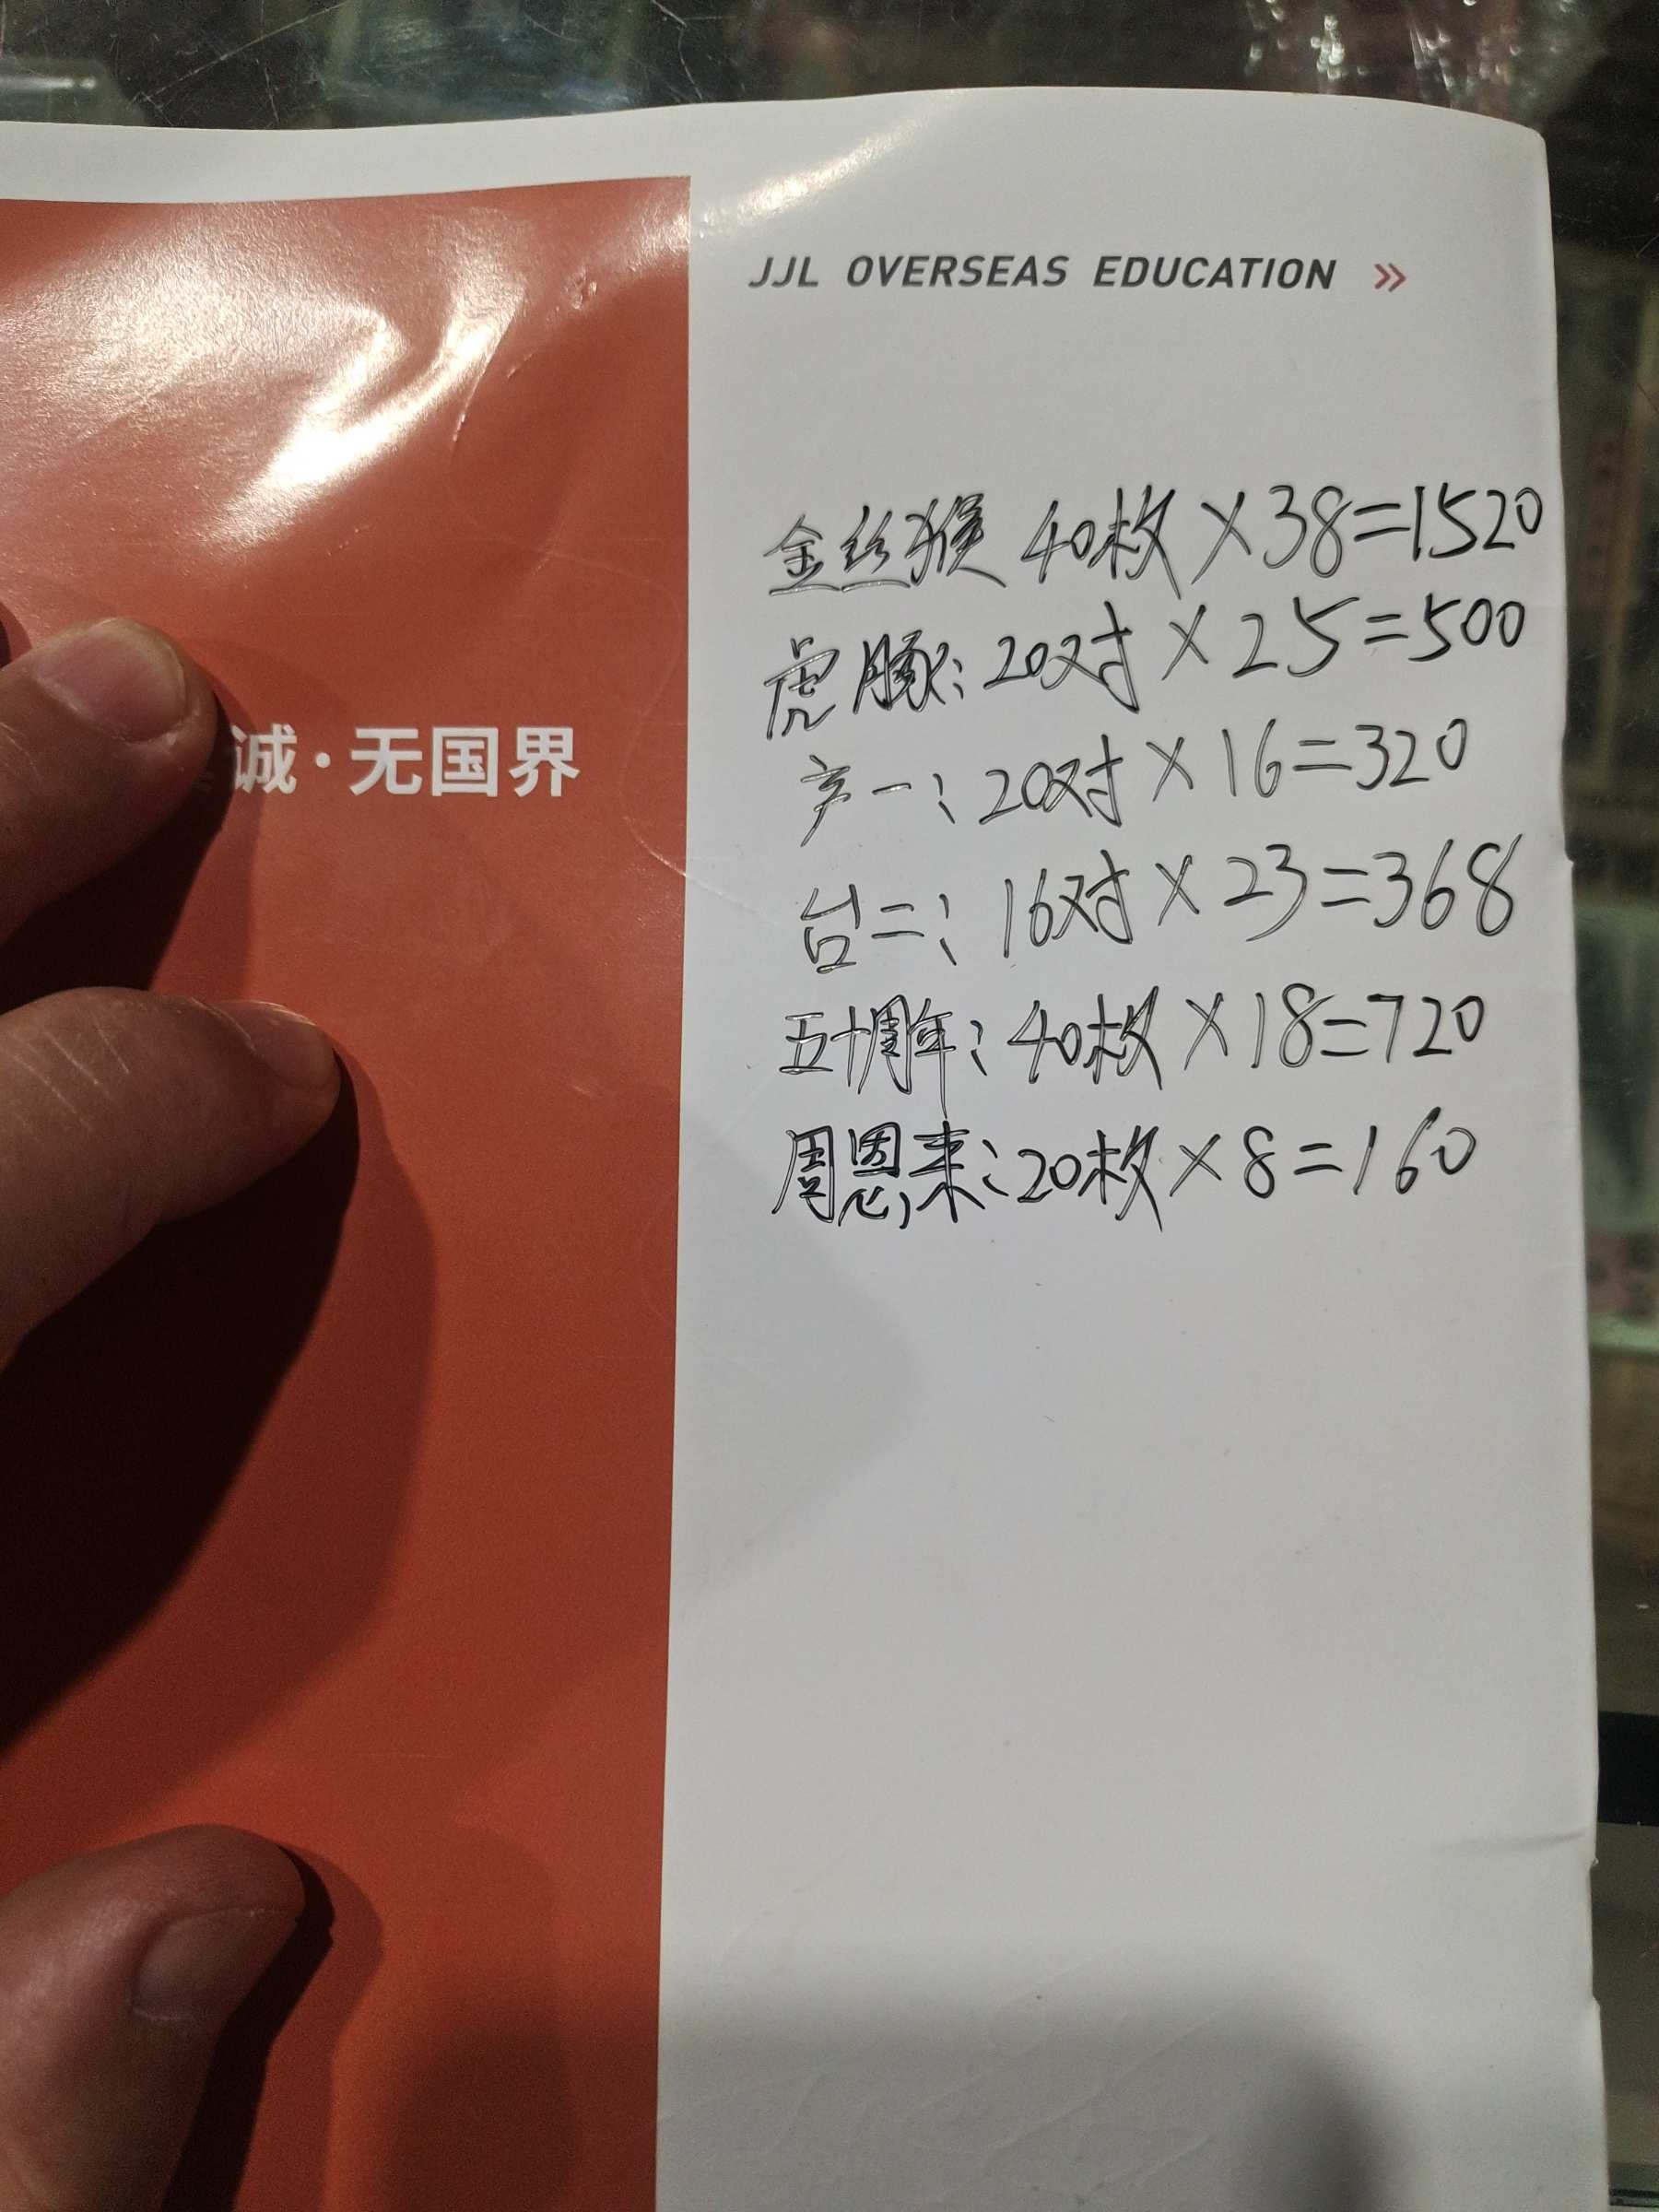 JJL OVERSEAS EDUCATION »
金丝猴 40枚×38=1520
虎豚:20对×25=500
诚·无国界
产一:20对×16=320
台二:16对×23=368
五十周年:40枚×18=720
周恩来:20枚×8=160